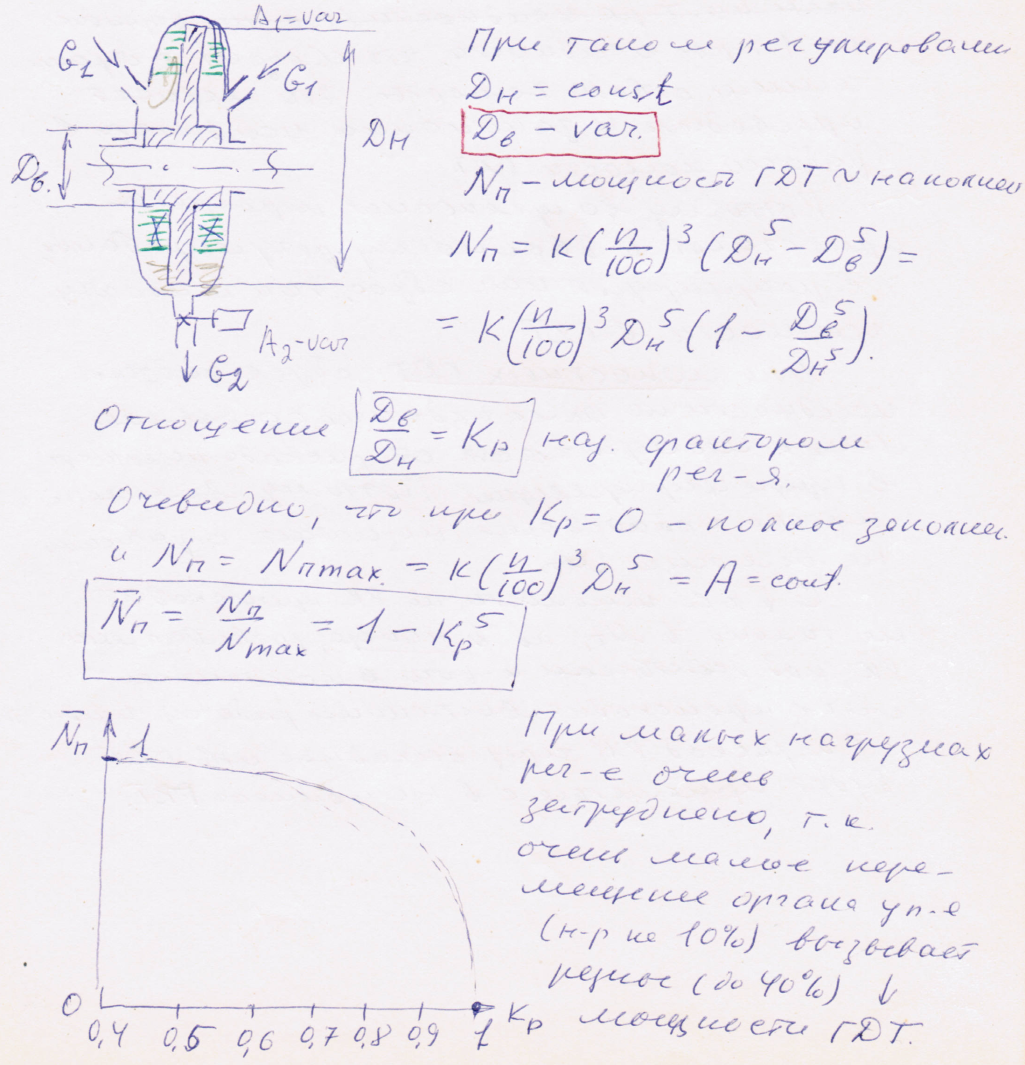 A₁=var
G₁
G₁
Dв.
Dн
A₂-var
G₂
При таком регулировании
Dн = const
Dв – var.
Nп – мощность ГДТ ~ наполнен
Nп = K(n/100)³ (Dн⁵ – Dв⁵) =
= K(n/100)³ Dн⁵ (1 – Dв⁵/Dн⁵).
Отношение Dв/Dн = Kр наз. фактором
рег-я.
Очевидно, что при Kр = 0 – полное заполнен.
и Nп = Nпmax = K(n/100)³ Dн⁵ = A = cont.
N̅п = Nп/Nmax = 1 – Kр⁵
N̅п
1
0
0,4 0,5 0,6 0,7 0,8 0,9 1 Kр
При малых нагрузках
рег-е очень
затруднено, т.к.
очень малое пере-
мещение органа уп-е
(н-р на 10%) вызывает
резкое (до 40%) ↓
мощности ГДТ.